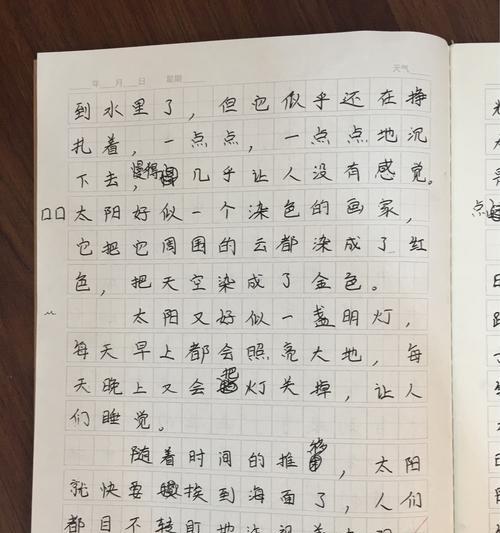 年 月 日 星期 天气
到水里了，但它似乎还在挣
扎着，一点点，一点点地沉
下去，慢得几乎让人没有感觉。
太阳好似一个染色的画家，
它把它周围的云都染成了红
色，把天空染成了金色。
太阳又好似一盏明灯，
每天早上都会照亮大地，每
天晚上又会把灯关掉，让人
们睡觉。
随着时间的推移，太阳
就快要挨到海面了，人们
都目不转盯地